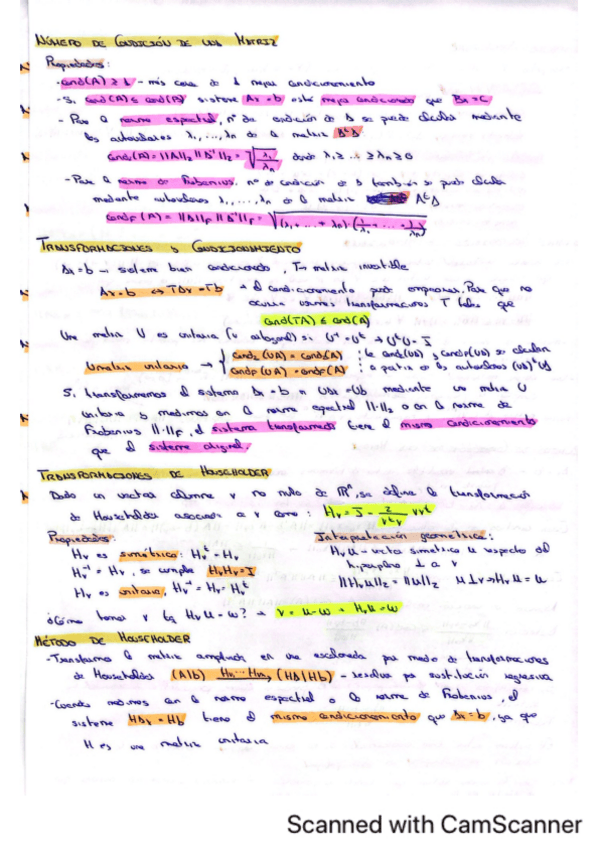 NÚMERO DE CONDICIÓN DE UNA MATRIZ
Propiedades:
- cond(A) ≥ 1 - más cerca de 1 mejor condicionamiento
- Si cond(A) ≤ cond(B) sistema Ax = b está mejor condicionado que Bx = C
- Para la norma espectral, nº de condición de A se puede calcular mediante
los autovalores λ1, ..., λn de la matriz AᵗA
cond2(A) = ||A||2 ||A⁻¹||2 = √(λ1/λn) donde λ1 ≥ ... ≥ λn ≥ 0
- Para la norma de Frobenius, nº de condición de A también se puede calcular
mediante autovalores λ1, ..., λn de la matriz AᵗA
condF(A) = ||A||F ||A⁻¹||F = √((λ1 + ... + λn) · (1/λ1 + ... + 1/λn))
TRANSFORMACIONES Y CONDICIONAMIENTO
Ax = b → sistema bien condicionado, T → matriz invertible
Ax = b ⇔ TAx = Tb → el condicionamiento puede empeorar. Para que no
ocurra usamos transformaciones T tales que
cond(TA) ≤ cond(A)
Una matriz U es unitaria (u ortogonal) si U⁻¹ = Uᵗ → UᵗU = I
U matriz unitaria → { cond2(UA) = cond2(A) : la cond2(UA) y condF(UA) se calculan
condF(UA) = condF(A) : a partir de los autovalores (UA)ᵗUA
Si transformamos el sistema Ax = b en UAx = Ub mediante una matriz U
unitaria y medimos en la norma espectral ||·||2 o en la norma de
Frobenius ||·||F, el sistema transformado tiene el mismo condicionamiento
que el sistema original.
TRANSFORMACIONES DE HOUSEHOLDER
Dado un vector columna v no nulo de ℝⁿ, se define la transformación
de Householder asociada a v como: Hv = I - 2/(vᵗv) vvᵗ
Propiedades: Interpretación geométrica:
Hv es simétrica: Hvᵗ = Hv Hvu = vector simétrico u respecto del
hiperplano ⊥ a v
Hv⁻¹ = Hv, se cumple HvHv = I ||Hvu||2 = ||u||2 u ⊥ v ⇒ Hvu = u
Hv es unitaria, Hv⁻¹ = Hv = Hvᵗ
¿Cómo tomar v tq Hvu = w? → v = u - w → Hvu = w
MÉTODO DE HOUSEHOLDER
- Transforma la matriz ampliada en una escalonada por medio de transformaciones
de Householder (A|b) → (HA|Hb) - resolver por sustitución regresiva
- Cuando medimos en la norma espectral o la norma de Frobenius, el
sistema HAx = Hb tiene el mismo condicionamiento que Ax = b, ya que
H es una matriz unitaria
Scanned with CamScanner